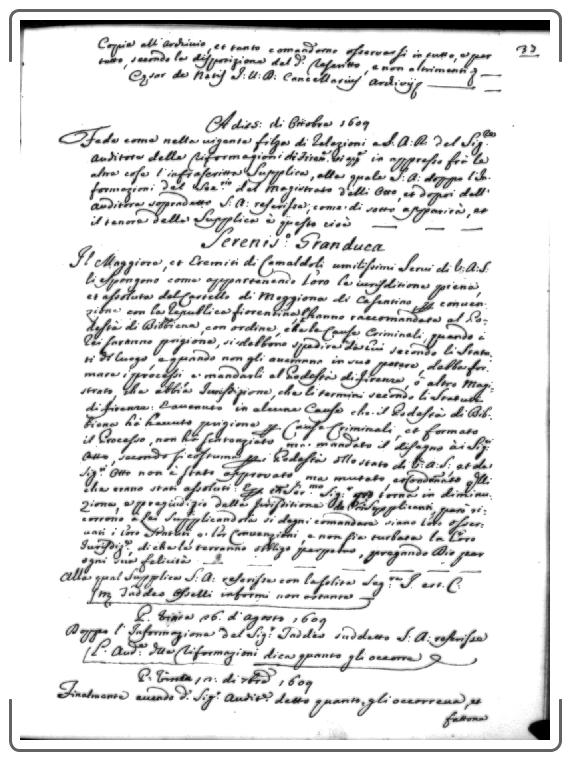 Copia all'Archivio, et tanto comandorno osservarsi in tutto, e per
tutto, secondo la disposizione del d.º Rescritto, e non altrimenti
Cesar de Natis J.U.D. Cancellarius Archivij
33
A dies: di Ottobre 1609
Fede come nella vigente filza di Relazioni a S.A.R. del Sig.re
Auditore delle Riformagioni di in appresso frà le
altre cose l'infrascritta Supplica, alla quale S.A. doppo l'in-
formazioni del Seg.rio del Magistrato delli Otto, et dopoi dell'
Auditore sopradetto S.A. rescrisse, come di sotto apparirà, et
il tenore della Supplica è questo cioè
Serenis.º Granduca
Il Maggiore, et Eremiti di Camaldoli umilissimi Servi di V.A.S.
li espongono come appartenendo loro la iurisditione piena,
et assoluta del Castello di Moggiona di Casentino p conven-
zione con la Republica fiorentina l'hanno raccomandata al Po-
destà di Bibbiena, con ordine, che le Cause Criminali, quando i
rei saranno prigione, si debbono spedire da secondo li Statu-
ti di luogo, e quando non gli in suo potere, debba for-
mare i processi, e mandarli al Podestà di firenze, ò altro Magi-
strato che abbia Iurisdizione, che li termini secondo li Statuti
di firenze. E avenuto in alcune Cause che il Podestà di Bib-
biena hà havuto prigione p Cause Criminali, et formato
il Processo, non hà sentenziato ma mandato il disegno à i Sig.ri
Otto, secondo si costuma p i Podestà dello stato di V.A.S. et da
Sig.ri Otto non è stato approvato ma mutato
che erano stati assoluti. Sig. torna in diminu-
zione, e pregiudizio della Iurisditione de Supplicanti, però ri-
corrono à lei Supplicandola si degni comandare siano loro osser-
vati i loro Statuti e le Convenzioni, e non sia turbata la loro
Iurisdiz.e, di che le terranno obbligo perpetuo, pregando Dio per
ogni sua felicità
Alla qual Supplica S.A. rescrisse con la solita Seg.ra I. est. C.
Mr. Taddeo Osselli informi non ostante
P. Vinta 26. d'Agosto 1609
Doppo l'Informazione del Sig.r Taddeo suddetto S.A. rescrisse
L'Aud.re delle Riformagioni dica quanto gli occorre
P. Vinta di 7bre 1609
Finalmente avendo d.º Sig.r Audit.re detto quanto gli occorreva, et
fattone